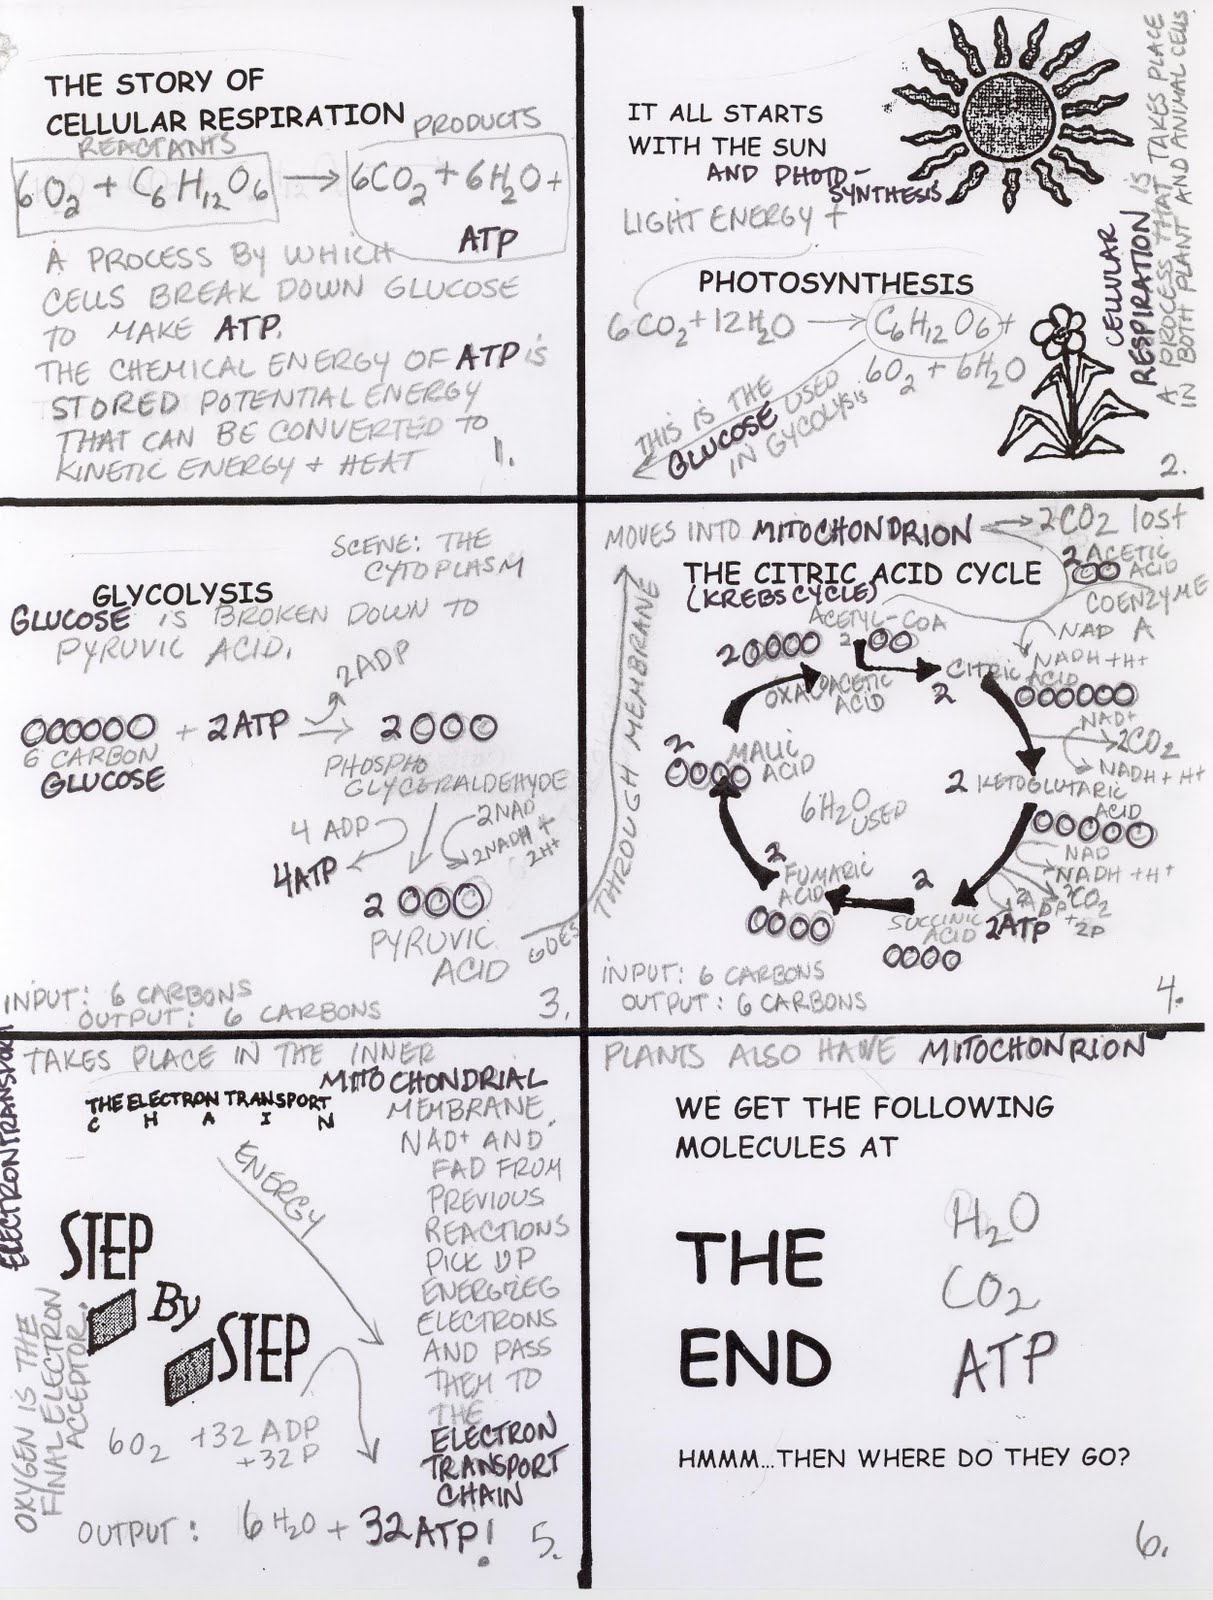 THE STORY OF
CELLULAR RESPIRATION
REACTANTS
PRODUCTS
6O2 + C6H12O6 → 6CO2 + 6H2O +
ATP
A PROCESS BY WHICH
CELLS BREAK DOWN GLUCOSE
TO MAKE ATP.
THE CHEMICAL ENERGY OF ATP is
STORED POTENTIAL ENERGY
THAT CAN BE CONVERTED TO
KINETIC ENERGY + HEAT
1.
IT ALL STARTS
WITH THE SUN
AND PHOTO-
SYNTHESIS
LIGHT ENERGY +
PHOTOSYNTHESIS
6CO2 + 12H2O → C6H12O6 +
6O2 + 6H2O
THIS IS THE
GLUCOSE USED
IN GYCOLYSIS
CELLULAR
RESPIRATION IS
A PROCESS THAT TAKES PLACE
IN BOTH PLANT AND ANIMAL CELLS
2.
SCENE: THE
CYTOPLASM
GLYCOLYSIS
GLUCOSE iS BROKEN DOWN TO
PYRUVIC ACID.
2ADP
+ 2ATP → 2
6 CARBON
GLUCOSE
PHOSPHO
GLYCERALDEHYDE
4 ADP
4ATP
2NAD
2NADH +
2H+
2
PYRUVIC
ACID
GOES
THROUGH MEMBRANE
INPUT: 6 CARBONS
OUTPUT: 6 CARBONS
3.
MOVES INTO MITOCHONDRION → 2CO2 lost
THE CITRIC ACID CYCLE
(KREBS CYCLE)
2 ACETIC
ACID
COENZYME
A
NAD
NADH + H+
ACETYL-COA
2
2
OXALOACETIC
ACID
CITRIC
ACID
2
NAD+
2CO2
NADH + H+
2 KETOGLUTARIC
ACID
NAD
NADH + H+
2CO2
2ADP
+
2P
2ATP
2
SUCCINIC
ACID
2
FUMARIC
ACID
2
MALIC
ACID
6H2O
USED
INPUT: 6 CARBONS
OUTPUT: 6 CARBONS
4.
ELECTRON TRANSPORT
TAKES PLACE IN THE INNER
MITOCHONDRIAL
MEMBRANE.
THE ELECTRON TRANSPORT
C H A I N
NAD+ AND
FAD FROM
PREVIOUS
REACTIONS
PICK UP
ENERGIZED
ELECTRONS
AND PASS
THEM TO
THE
ELECTRON
TRANSPORT
CHAIN
ENERGY
STEP
By
STEP
OXYGEN IS THE
FINAL ELECTRON
ACCEPTOR.
6O2 +32 ADP
+32 P
OUTPUT: 6H2O + 32 ATP!
5.
PLANTS ALSO HAVE MITOCHONRION
WE GET THE FOLLOWING
MOLECULES AT
THE
END
H2O
CO2
ATP
HMMM...THEN WHERE DO THEY GO?
6.